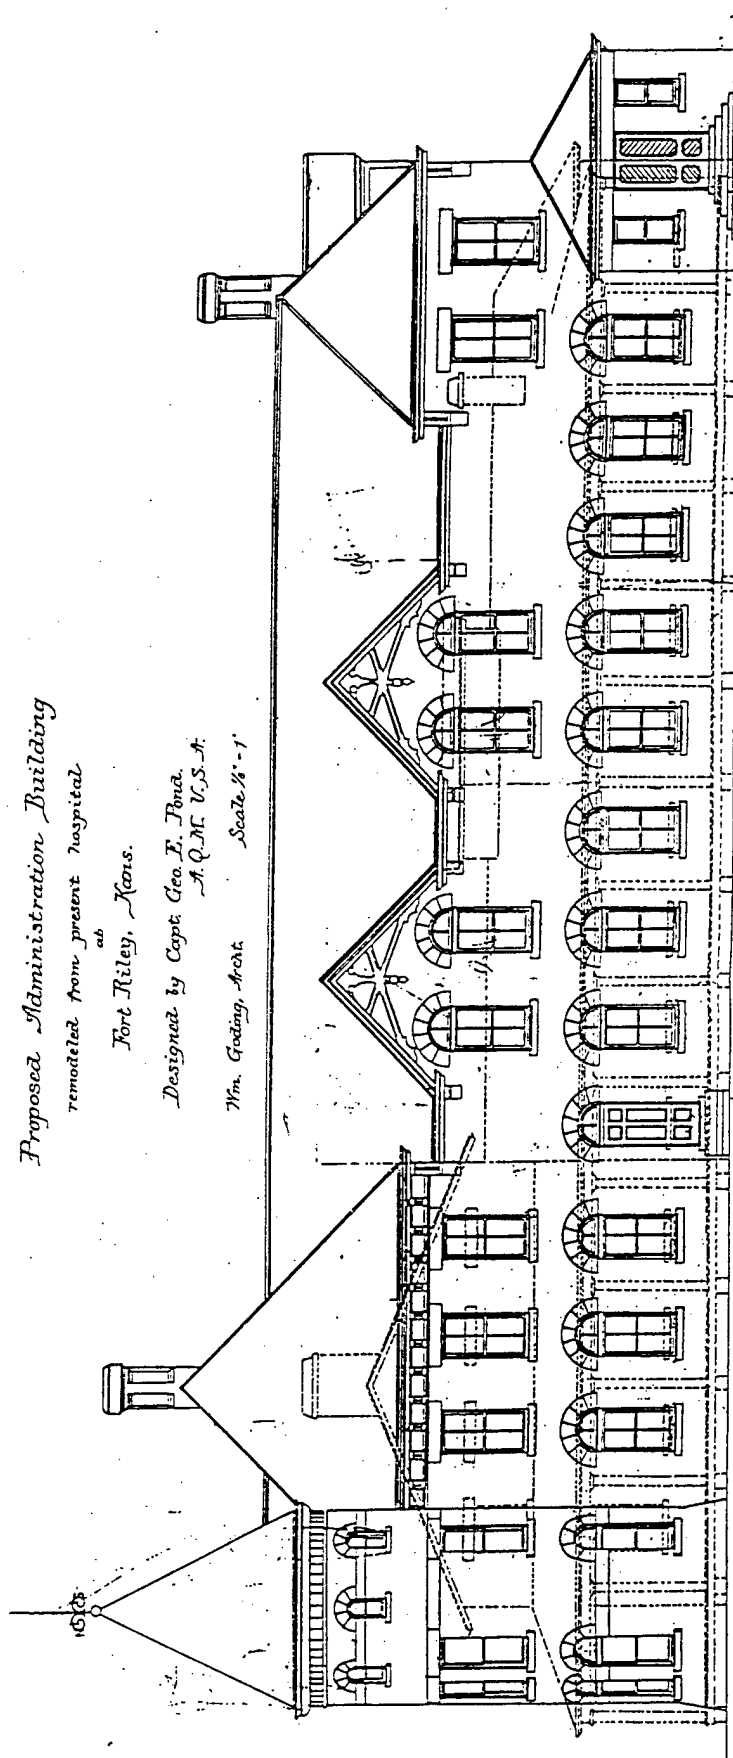 Proposed Administration Building
remodeled from present hospital
at
Fort Riley, Kans.
Designed by Capt. Geo. E. Pond.
A.Q.M. U.S.A.
Wm. Goding, Archt. Scale ⅛" - 1'